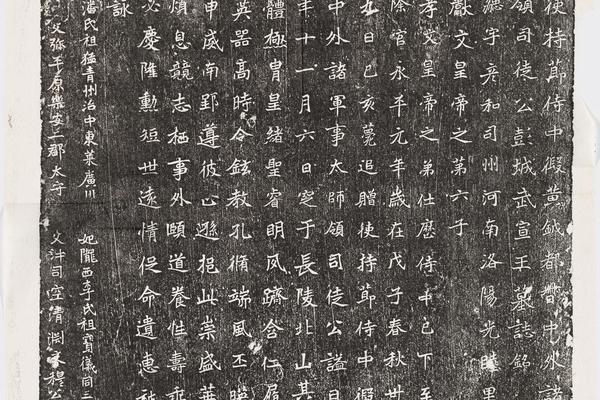 使持節侍中假黃鉞都督中外諸
領司徒公彭城武宣王墓誌銘
勰字彥和司州河南洛陽光睦里
獻文皇帝之第六子
孝文皇帝之弟仕歷侍中已下至
除官永平元年歲在戊子春秋卅
九日己亥薨追贈使持節侍中假
中外諸軍事太師領司徒公謚曰
年十一月六日窆于長陵北山其
體極冑皇緒聖睿明夙躋含仁履
英器高時令鉉教孔脩端風丕映
申威南郢遵彼止遜挹此崇盛華
煩息競志栖事外頤道養性壽乖
必慶隆勳短世遠情促命遺惠被
詠
潘氏祖猛青州治中東萊廣川
妃隴西李氏祖寶儀同三
父弥平原樂安二郡太守
父沖司空清淵文穆公